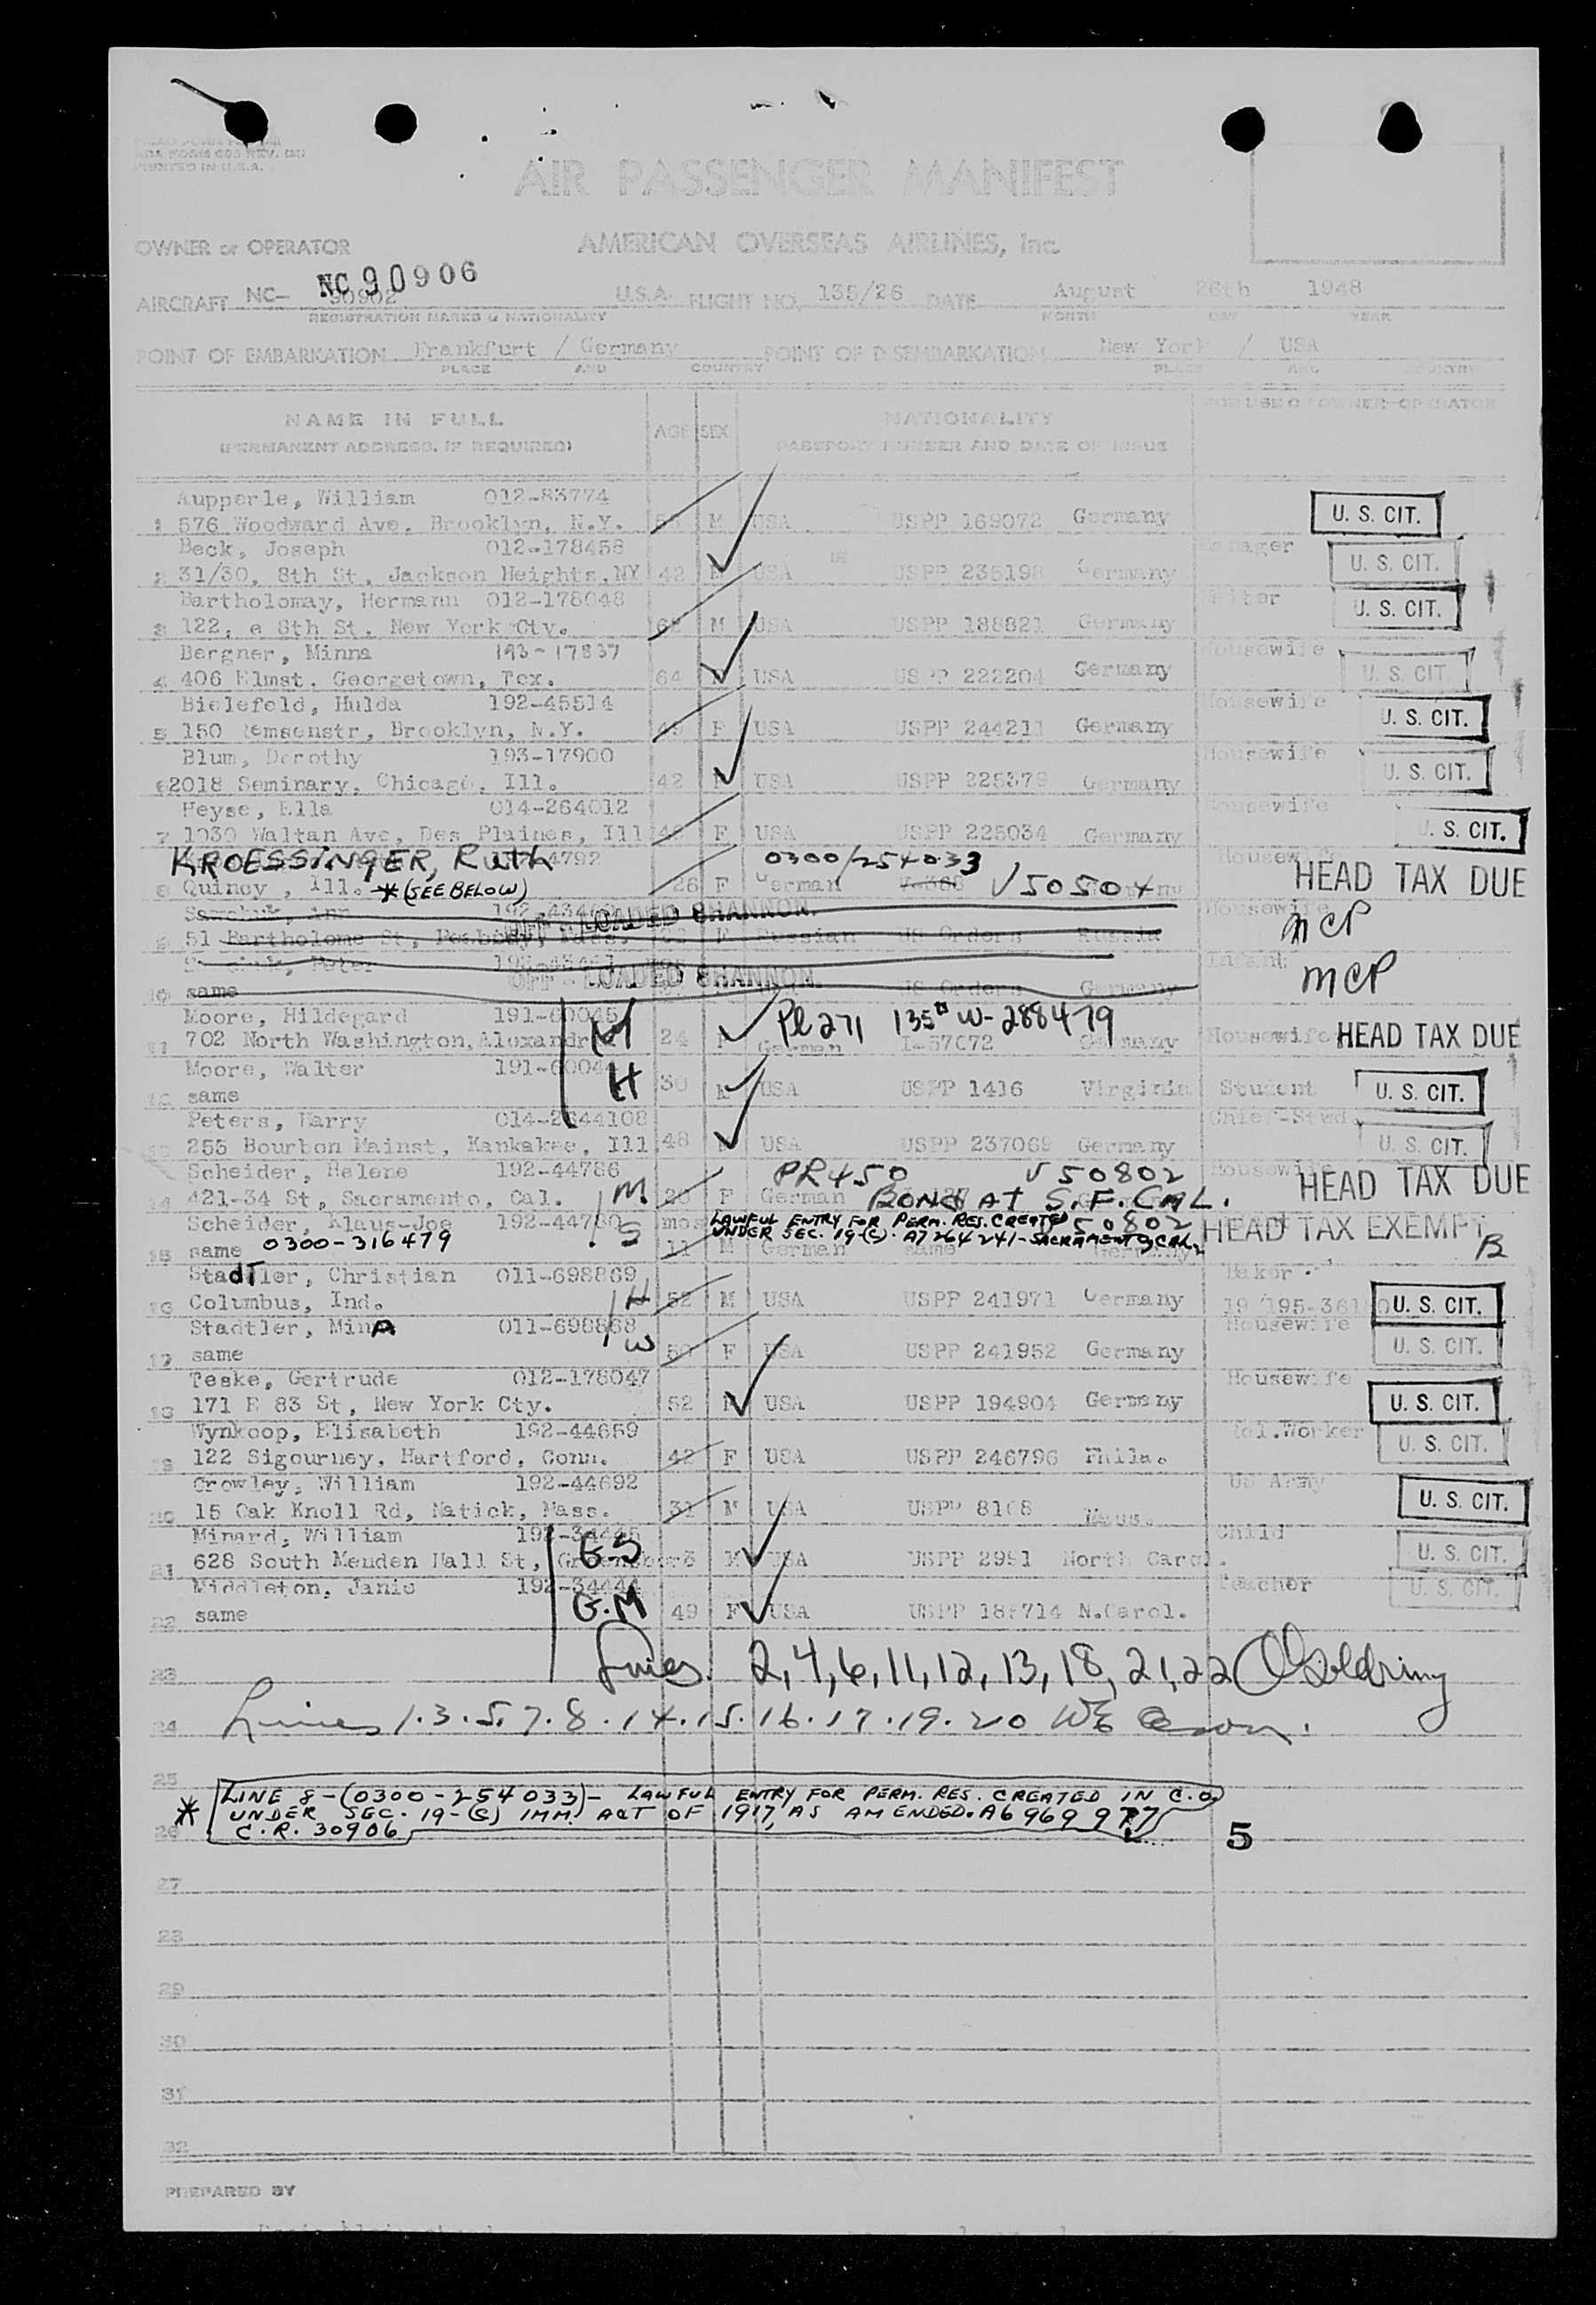 PRINTED IN U.S.A.
AIR PASSENGER MANIFEST
OWNER or OPERATOR AMERICAN OVERSEAS AIRLINES, Inc.
AIRCRAFT NC- 90902 NC 90906 U.S.A. FLIGHT NO. 135/26 DATE August 26th 1948
REGISTRATION MARKS & NATIONALITY MONTH DAY YEAR
POINT OF EMBARKATION Frankfurt / Germany POINT OF DISEMBARKATION New York / USA
PLACE AND COUNTRY PLACE AND COUNTRY
NAME IN FULL AGE SEX NATIONALITY FOR USE OF OWNER-OPERATOR
(PERMANENT ADDRESS, IF REQUIRED) PASSPORT NUMBER AND DATE OF ISSUE
Aupperle, William 012-83774
1 576 Woodward Ave. Brooklyn, N.Y. M USA USPP 169072 Germany U. S. CIT.
Beck, Joseph 012-178458 Manager
2 31/30, 8th St, Jackson Heights, NY 42 M USA USPP 235198 Germany U. S. CIT.
Bartholomay, Hermann 012-178048
3 122, e 8th St. New York Cty. M USA USPP 188821 Germany U. S. CIT.
Bergner, Minna 193-17837 Housewife
4 406 Elmst. Georgetown, Tex. 64 USA USPP 222204 Germany U. S. CIT.
Bielefeld, Hulda 192-45514 Housewife
5 150 Remsenstr, Brooklyn, N.Y. F USA USPP 244211 Germany U. S. CIT.
Blum, Dorothy 193-17900 Housewife
6 2018 Seminary, Chicago, Ill. 42 USA USPP 225379 Germany U. S. CIT.
Heyse, Ella 014-264012 Housewife
7 1030 Waltan Ave, Des Plaines, Ill F USA USPP 225034 Germany U. S. CIT.
KROESSINGER, Ruth 4792 0300/254033 Housewife
8 Quincy, Ill. *(SEE BELOW) 26 F German V-368 V50504 HEAD TAX DUE
Sawchuk, Ann OFF - LOADED SHANNON. Housewife MCP
9 51 Bartholome St, F Russian US Orders Russia
192-43461 OFF - LOADED SHANNON. Infant MCP
10 same US Orders Germany
Moore, Hildegard 191-60045 W Pl 271 135 W-288479
11 702 North Washington, Alexandr 24 German I-57072 Germany Housewife HEAD TAX DUE
Moore, Walter 191-6004 H
12 same 30 M USA USPP 1416 Virginia Student U. S. CIT.
Peters, Harry 014-2644108 Chief-Stwd.
13 255 Bourbon Mainst, Kankakee, Ill 48 USA USPP 237069 Germany U. S. CIT.
Scheider, Helene 192-44786 M PR450 V50802 Housewife
14 421-34 St, Sacramento, Cal. F German BOND AT S.F. CAL. HEAD TAX DUE
Scheider, Klaus-Joe 192-44780 S mos LAWFUL ENTRY FOR PERM. RES. CREATED 50802
UNDER SEC. 19-(c). A7264241-SACRAMENTO, CAL. HEAD TAX EXEMPT
15 same 0300-316479 11 M German same Germany
Stadtler, Christian 011-698869 H Baker
16 Columbus, Ind. 52 M USA USPP 241971 Germany U. S. CIT.
Stadtler, Minna 011-698868 W Housewife
17 same 50 F USA USPP 241952 Germany U. S. CIT.
Teske, Gertrude 012-178047 Housewife
18 171 E 83 St, New York Cty. 52 USA USPP 194904 Germany U. S. CIT.
Wynkoop, Elisabeth 192-44659 Rel.Worker
19 122 Sigourney, Hartford, Conn. 42 F USA USPP 246796 Phila. U. S. CIT.
Crowley, William 192-44692 US Army
20 15 Oak Knoll Rd, Natick, Mass. 31 M USA USPP 8108 Mass. U. S. CIT.
Minard, William 192-34445 G-S Child
21 628 South Menden Hall St, Greensboro M USA USPP 2991 North Carol. U. S. CIT.
Middleton, Janie 192-34444 G.M Teacher
22 same 49 F USA N.Carol. U. S. CIT.
23 Lines. 2,4,6,11,12,13,18,21,22 Goldring
24 Lines 1.3.5.7.8.14.15.16.17.19.20
25
* LINE 8-(0300-254033)- LAWFUL ENTRY FOR PERM. RES. CREATED IN C.O.
UNDER SEC. 19-(c) IMM. ACT OF 1917, AS AMENDED. A6969977
26 C.R. 30906 5
27
28
29
30
31
32
PREPARED BY